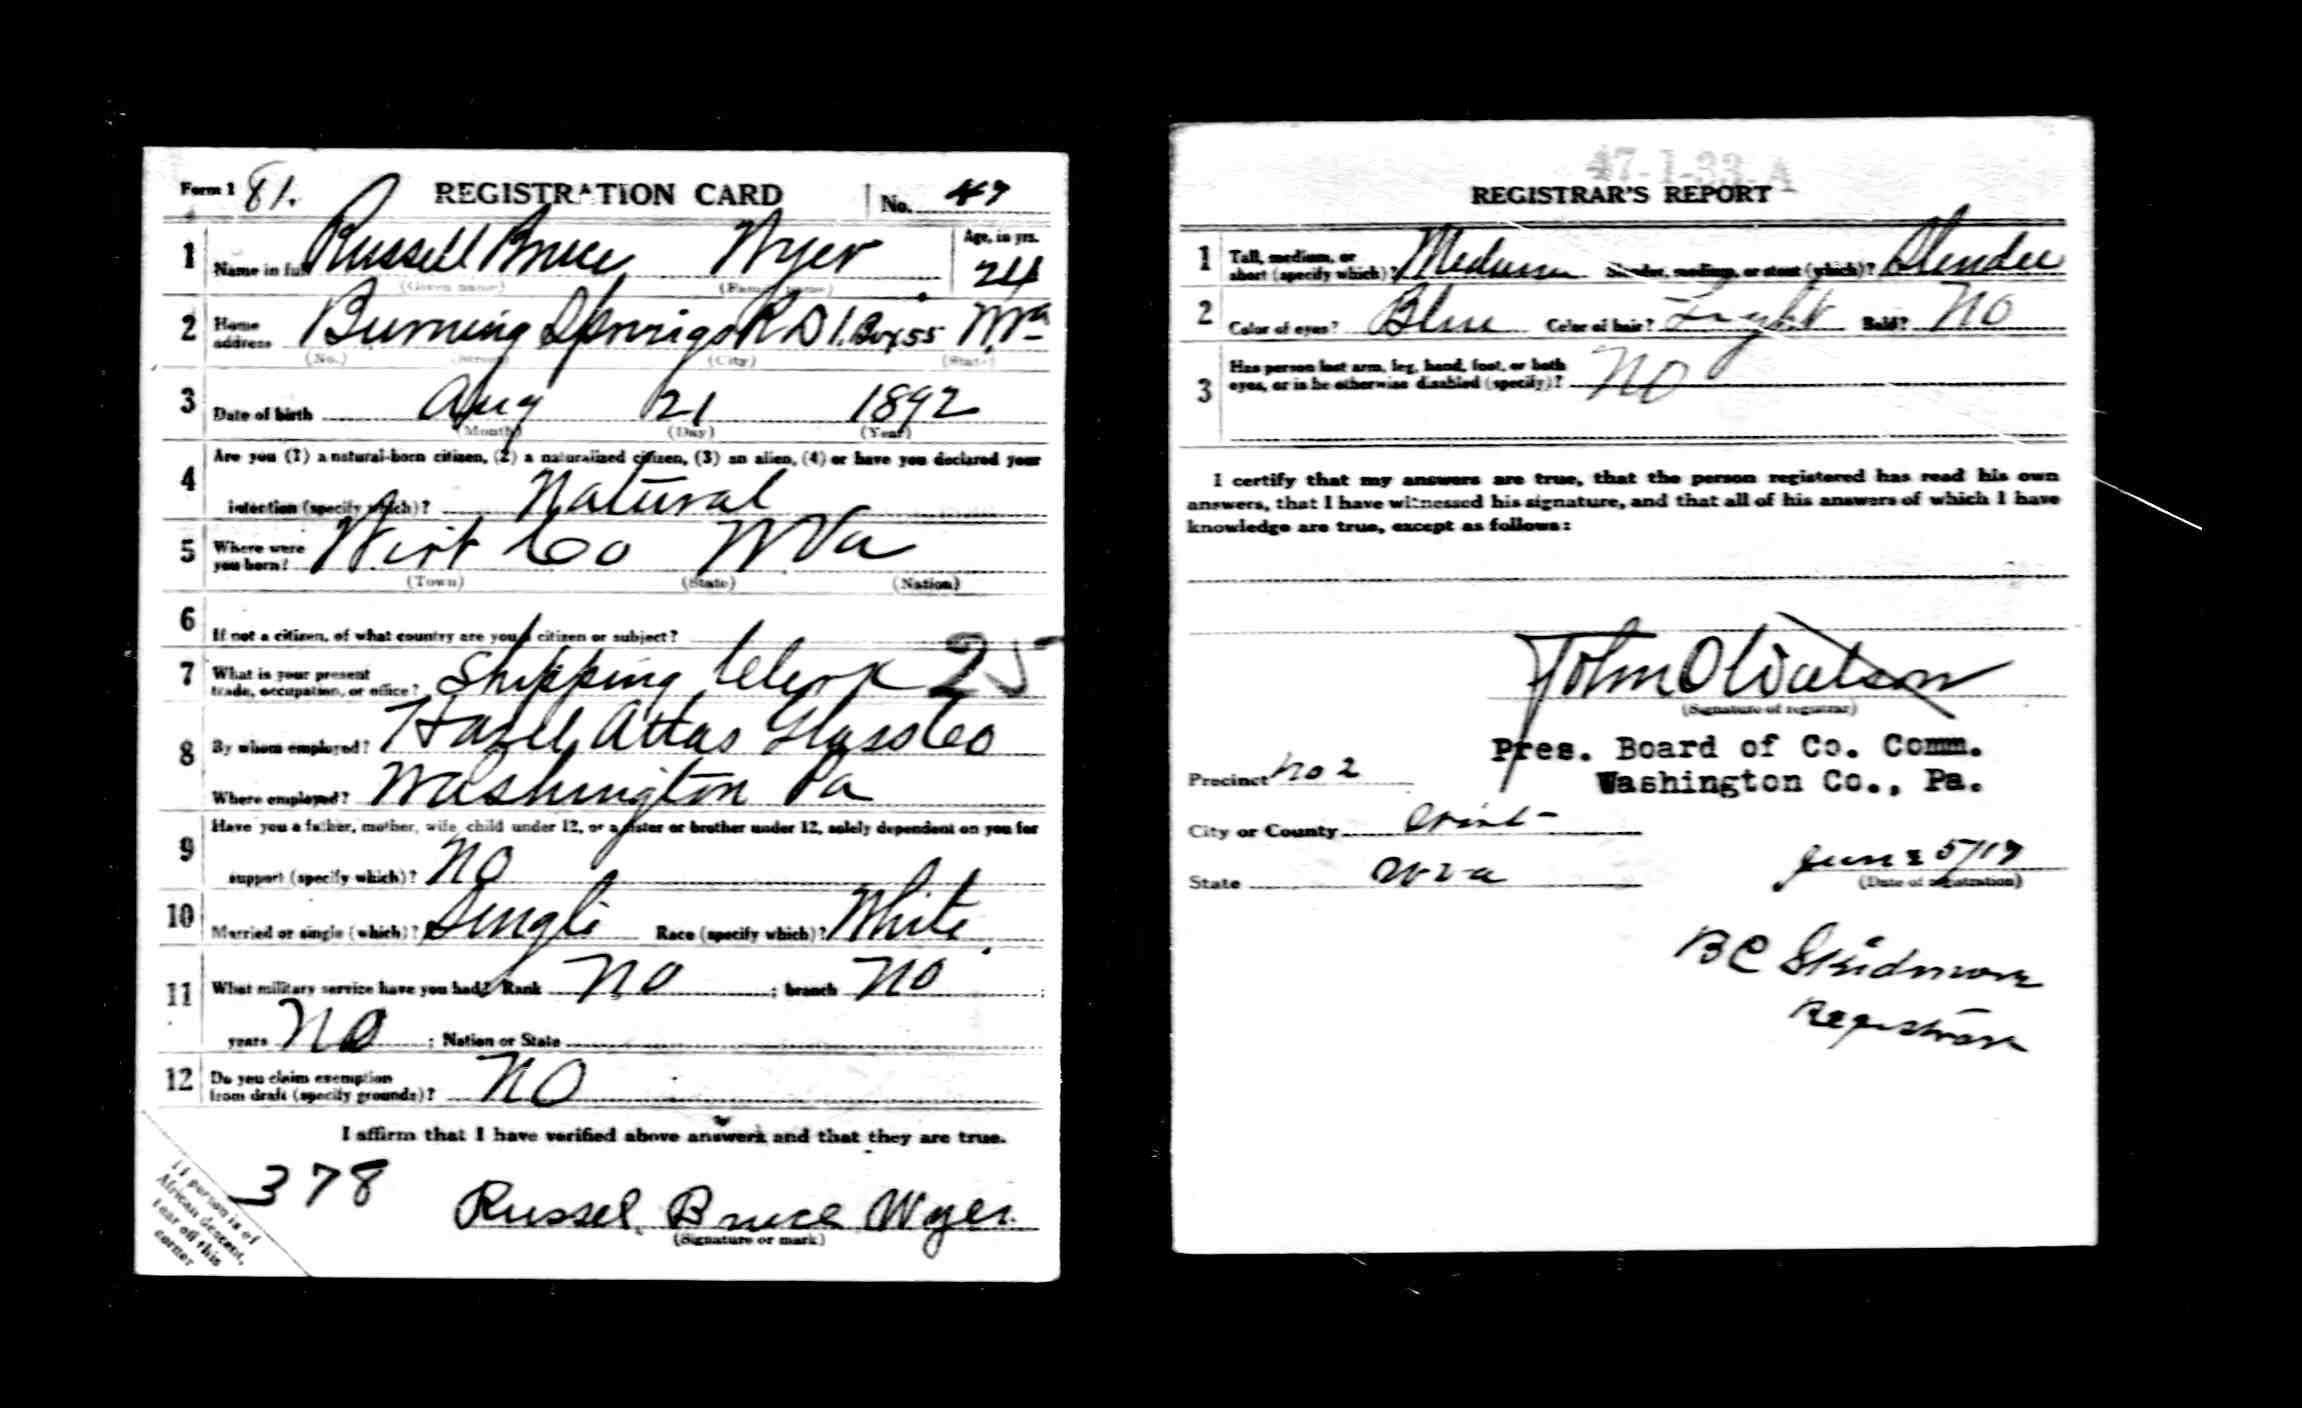 Form 1 81. REGISTRATION CARD No. 47
1 Name in full Russell Bruce Wyer Age, in yrs. 24
(Given name) (Family name)
2 Home address Burning Springs R D 1. Box 55 W. Va
(No.) (Street) (City) (State)
3 Date of birth Aug 21 1892
(Month) (Day) (Year)
4 Are you (1) a natural-born citizen, (2) a naturalized citizen, (3) an alien, (4) or have you declared your
intention (specify which)? Natural
5 Where were you born? Wirt Co W Va
(Town) (State) (Nation)
6 If not a citizen, of what country are you a citizen or subject?
7 What is your present trade, occupation, or office? Shipping Clerk 25
8 By whom employed? Hazel Attas Glass Co
Where employed? Washington Pa
9 Have you a father, mother, wife, child under 12, or a sister or brother under 12, solely dependent on you for
support (specify which)? No
10 Married or single (which)? Single Race (specify which)? White
11 What military service have you had? Rank No ; branch No ;
years No ; Nation or State
12 Do you claim exemption from draft (specify grounds)? No
I affirm that I have verified above answers and that they are true.
378
Russel Bruce Wyer
(Signature or mark)
If person is of
African descent,
tear off this
corner
47-1-33-A
REGISTRAR'S REPORT
1 Tall, medium, or short (specify which)? Medium Slender, medium, or stout (which)? Slender
2 Color of eyes? Blue Color of hair? Light Bald? No
3 Has person lost arm, leg, hand, foot, or both
eyes, or is he otherwise disabled (specify)? No
I certify that my answers are true, that the person registered has read his own
answers, that I have witnessed his signature, and that all of his answers of which I have
knowledge are true, except as follows:
John O Watson
(Signature of registrar)
Pres. Board of Co. Comm.
Washington Co., Pa.
Precinct No 2
City or County Wirt
State W Va
June 5/17
(Date of registration)
B C Skidmore
Registrar